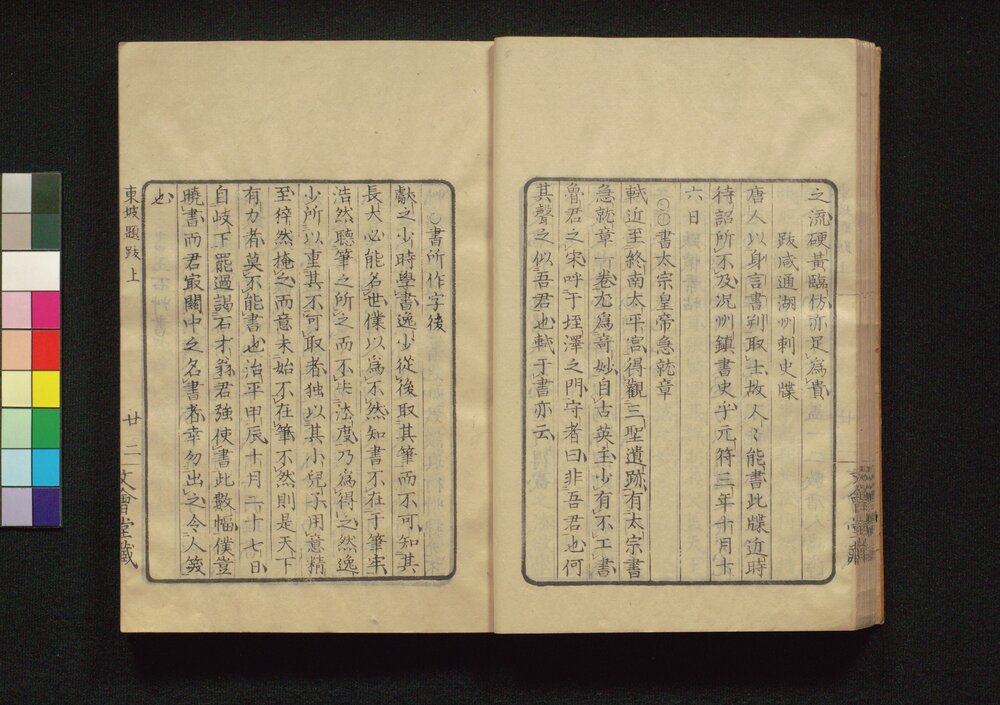 之流硬黃臨倣亦足爲貴
跋咸通湖州刺史牒
唐人以身言書判取士故人〻能書此牒近時
待詔所不及况州鎮書史乎元符三年十月十
六日
書太宗皇帝急就章
軾近至終南太平宮得觀三聖遺跡有太宗書
急就章一卷尤爲奇妙自古英主少有不工書
魯君之宋呼于垤澤之門守者曰非吾君也何
其聲之似吾君也軾于書亦云
書所作字後
獻之少時學書逸少從後取其筆而不可知其
長大必能名世僕以爲不然知書不在于筆牢
浩然聽筆之所之而不失法度乃爲得之然逸
少所以重其不可取者独以其小兒子用意精
至猝然掩之而意未始不在筆不然則是天下
有力者莫不能書也治平甲辰十月二十七日
自岐下罷過謁石才翁君強使書此數幅僕豈
曉書而君㝡關中之名書者幸勿出之令人笑
也
東坡題跋上
廿二
文會堂藏